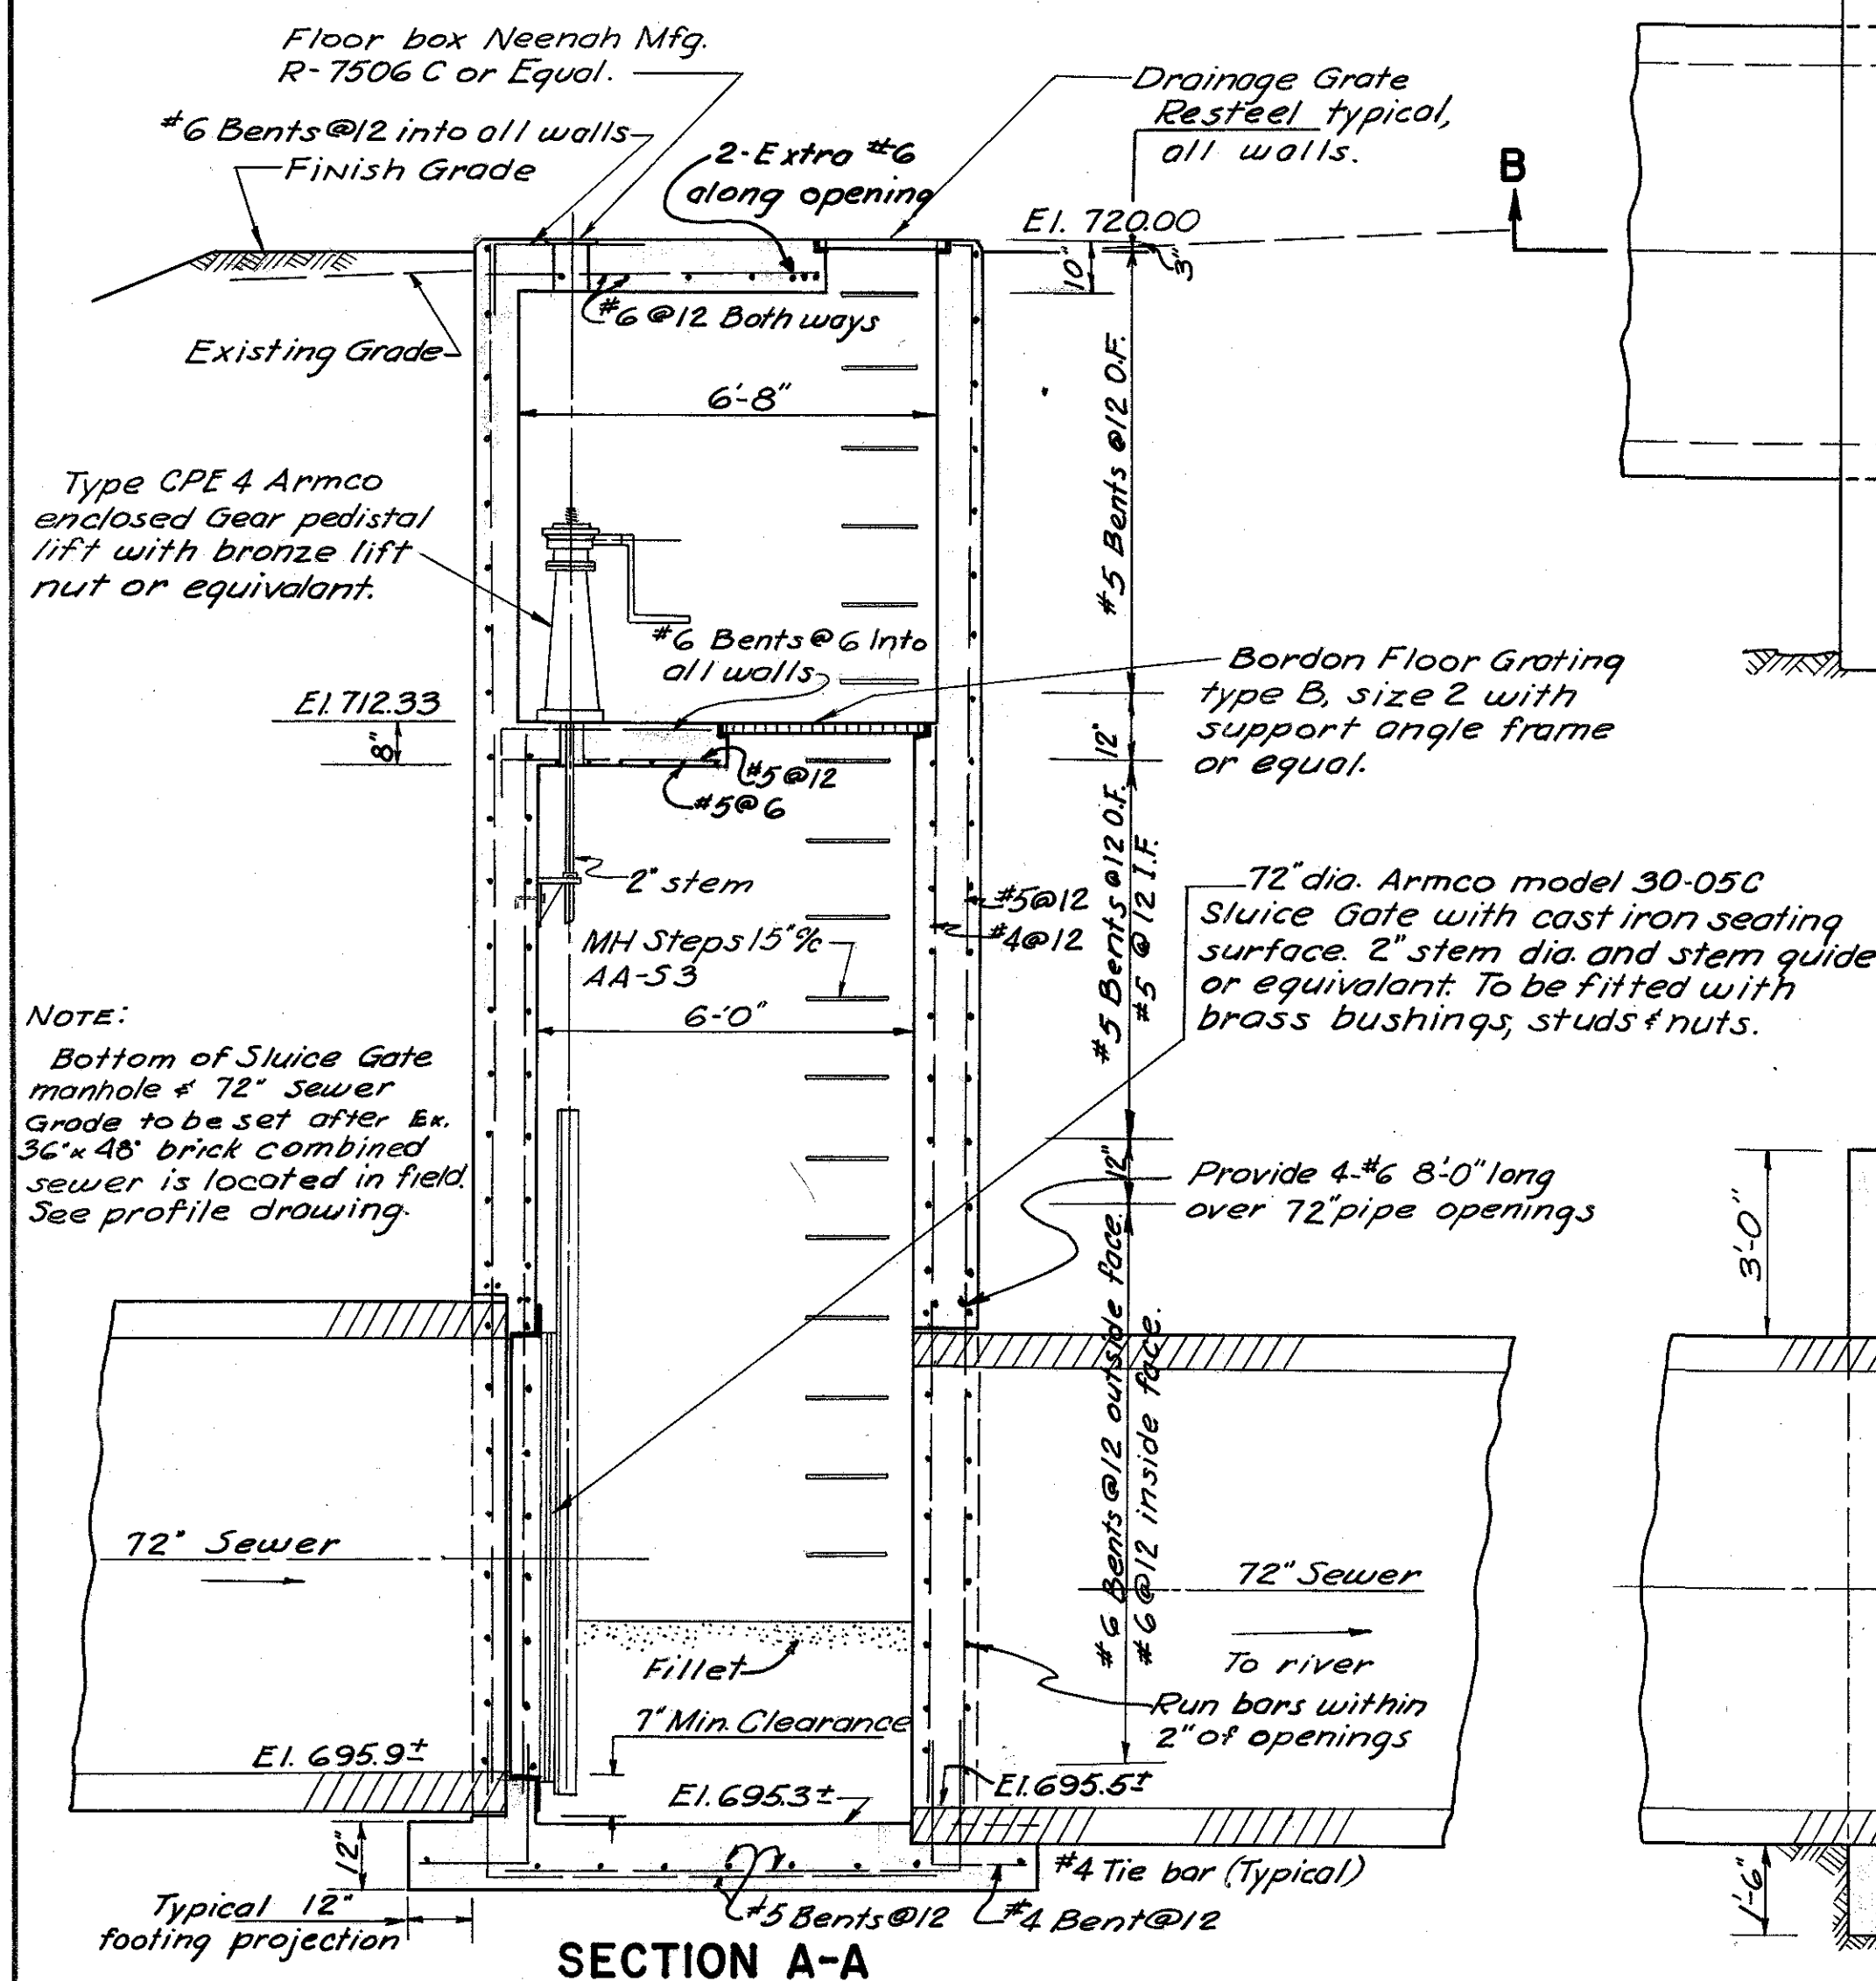 Floor box Neenah Mfg.
R-7506 C or Equal.
#6 Bents @12 into all walls
Finish Grade
2-Extra #6
along opening
Drainage Grate
Resteel typical,
all walls.
B
El. 720.00
10"
3"
#6 @12 Both ways
Existing Grade
6'-8"
#5 Bents @12 O.F.
Type CPE 4 Armco
enclosed Gear pedistal
lift with bronze lift
nut or equivalant.
#6 Bents @ 6 Into
all walls
Bordon Floor Grating
type B, size 2 with
support angle frame
or equal.
El. 712.33
8"
12"
#5@12
#5@6
2" stem
#5 Bents @12 O.F.
#5 @ 12 I.F.
#5@12
#4@12
72" dia. Armco model 30-05C
Sluice Gate with cast iron seating
surface. 2" stem dia. and stem guide
or equivalant. To be fitted with
brass bushings, studs & nuts.
MH Steps 15" o/c
AA-53
6'-0"
NOTE:
Bottom of Sluice Gate
manhole & 72" Sewer
Grade to be set after Ex.
36"x 48" brick combined
sewer is located in field.
See profile drawing.
12"
Provide 4-#6 8'-0" long
over 72" pipe openings
3'-0"
#6 Bents @12 outside face.
#6 @12 inside face.
72" Sewer
72" Sewer
To river
Fillet
Run bars within
2" of openings
7" Min. Clearance
El. 695.9±
El. 695.3±
El. 695.5±
12"
#4 Tie bar (Typical)
1'-6"
Typical 12"
footing projection
#5 Bents @12
#4 Bent @12
SECTION A-A